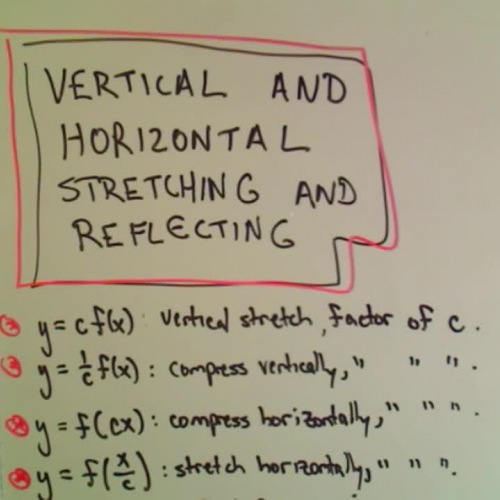 VERTICAL AND
HORIZONTAL
STRETCHING AND
REFLECTING
y = c f(x) : vertical stretch, factor of c.
y = 1/c f(x) : compress vertically, " " ".
y = f(cx) : compress horizontally, " " ".
y = f(x/c) : stretch horizontally, " " ".